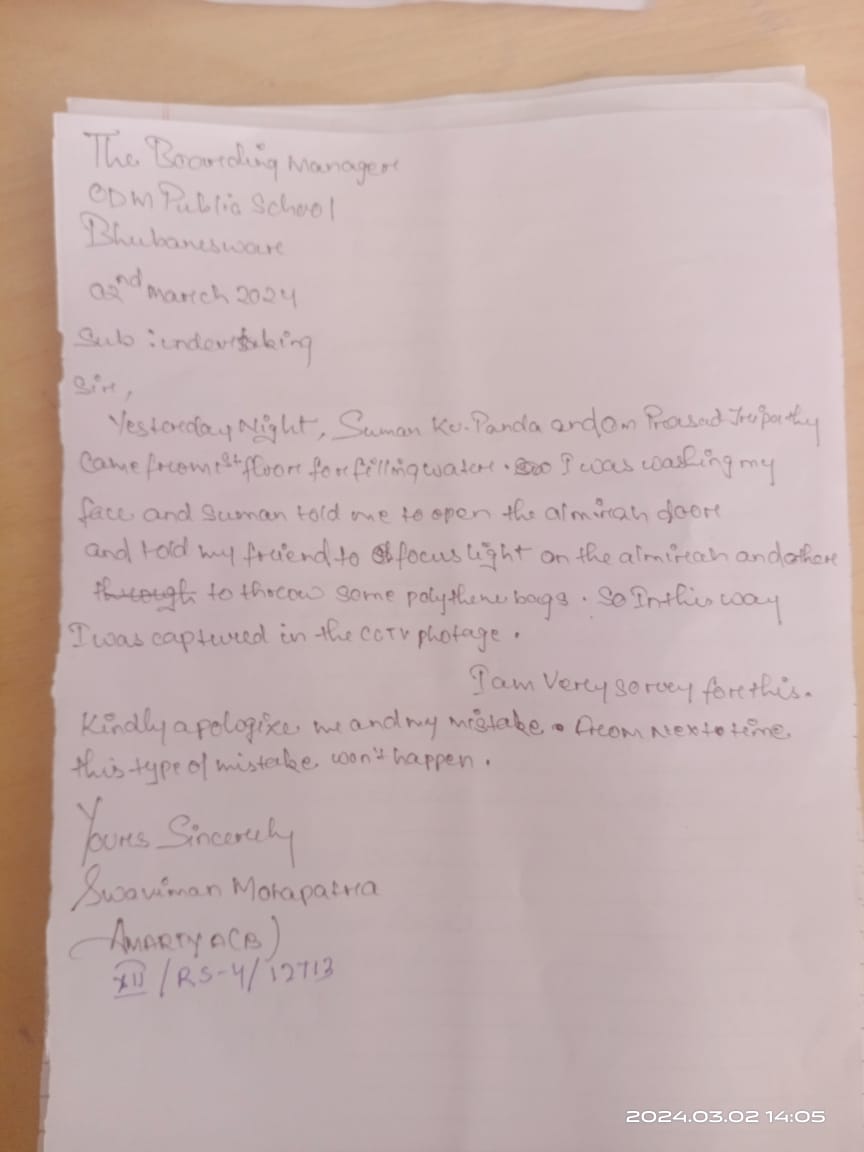 The Boarding Manager
ODM Public School
Bhubaneswar
02nd March 2024
Sub : undertaking
Sir,
Yesterday Night, Suman Ku. Panda and Om Prasad Tripathy
Came from 1st floor for filling water. So I was washing my
face and Suman told me to open the almirah door
and told my friend to focus light on the almirah and there
through to throw some polythene bags. So In this way
I was captured in the CCTV photage.
I am Very sorry for this.
Kindly apologize me and my mistake. From Next to time
this type of mistake won't happen.
Yours Sincerely
Swaviman Mohapatra
AMARTYA (B)
XII / RS-4 / 12713
2024.03.02 14:05